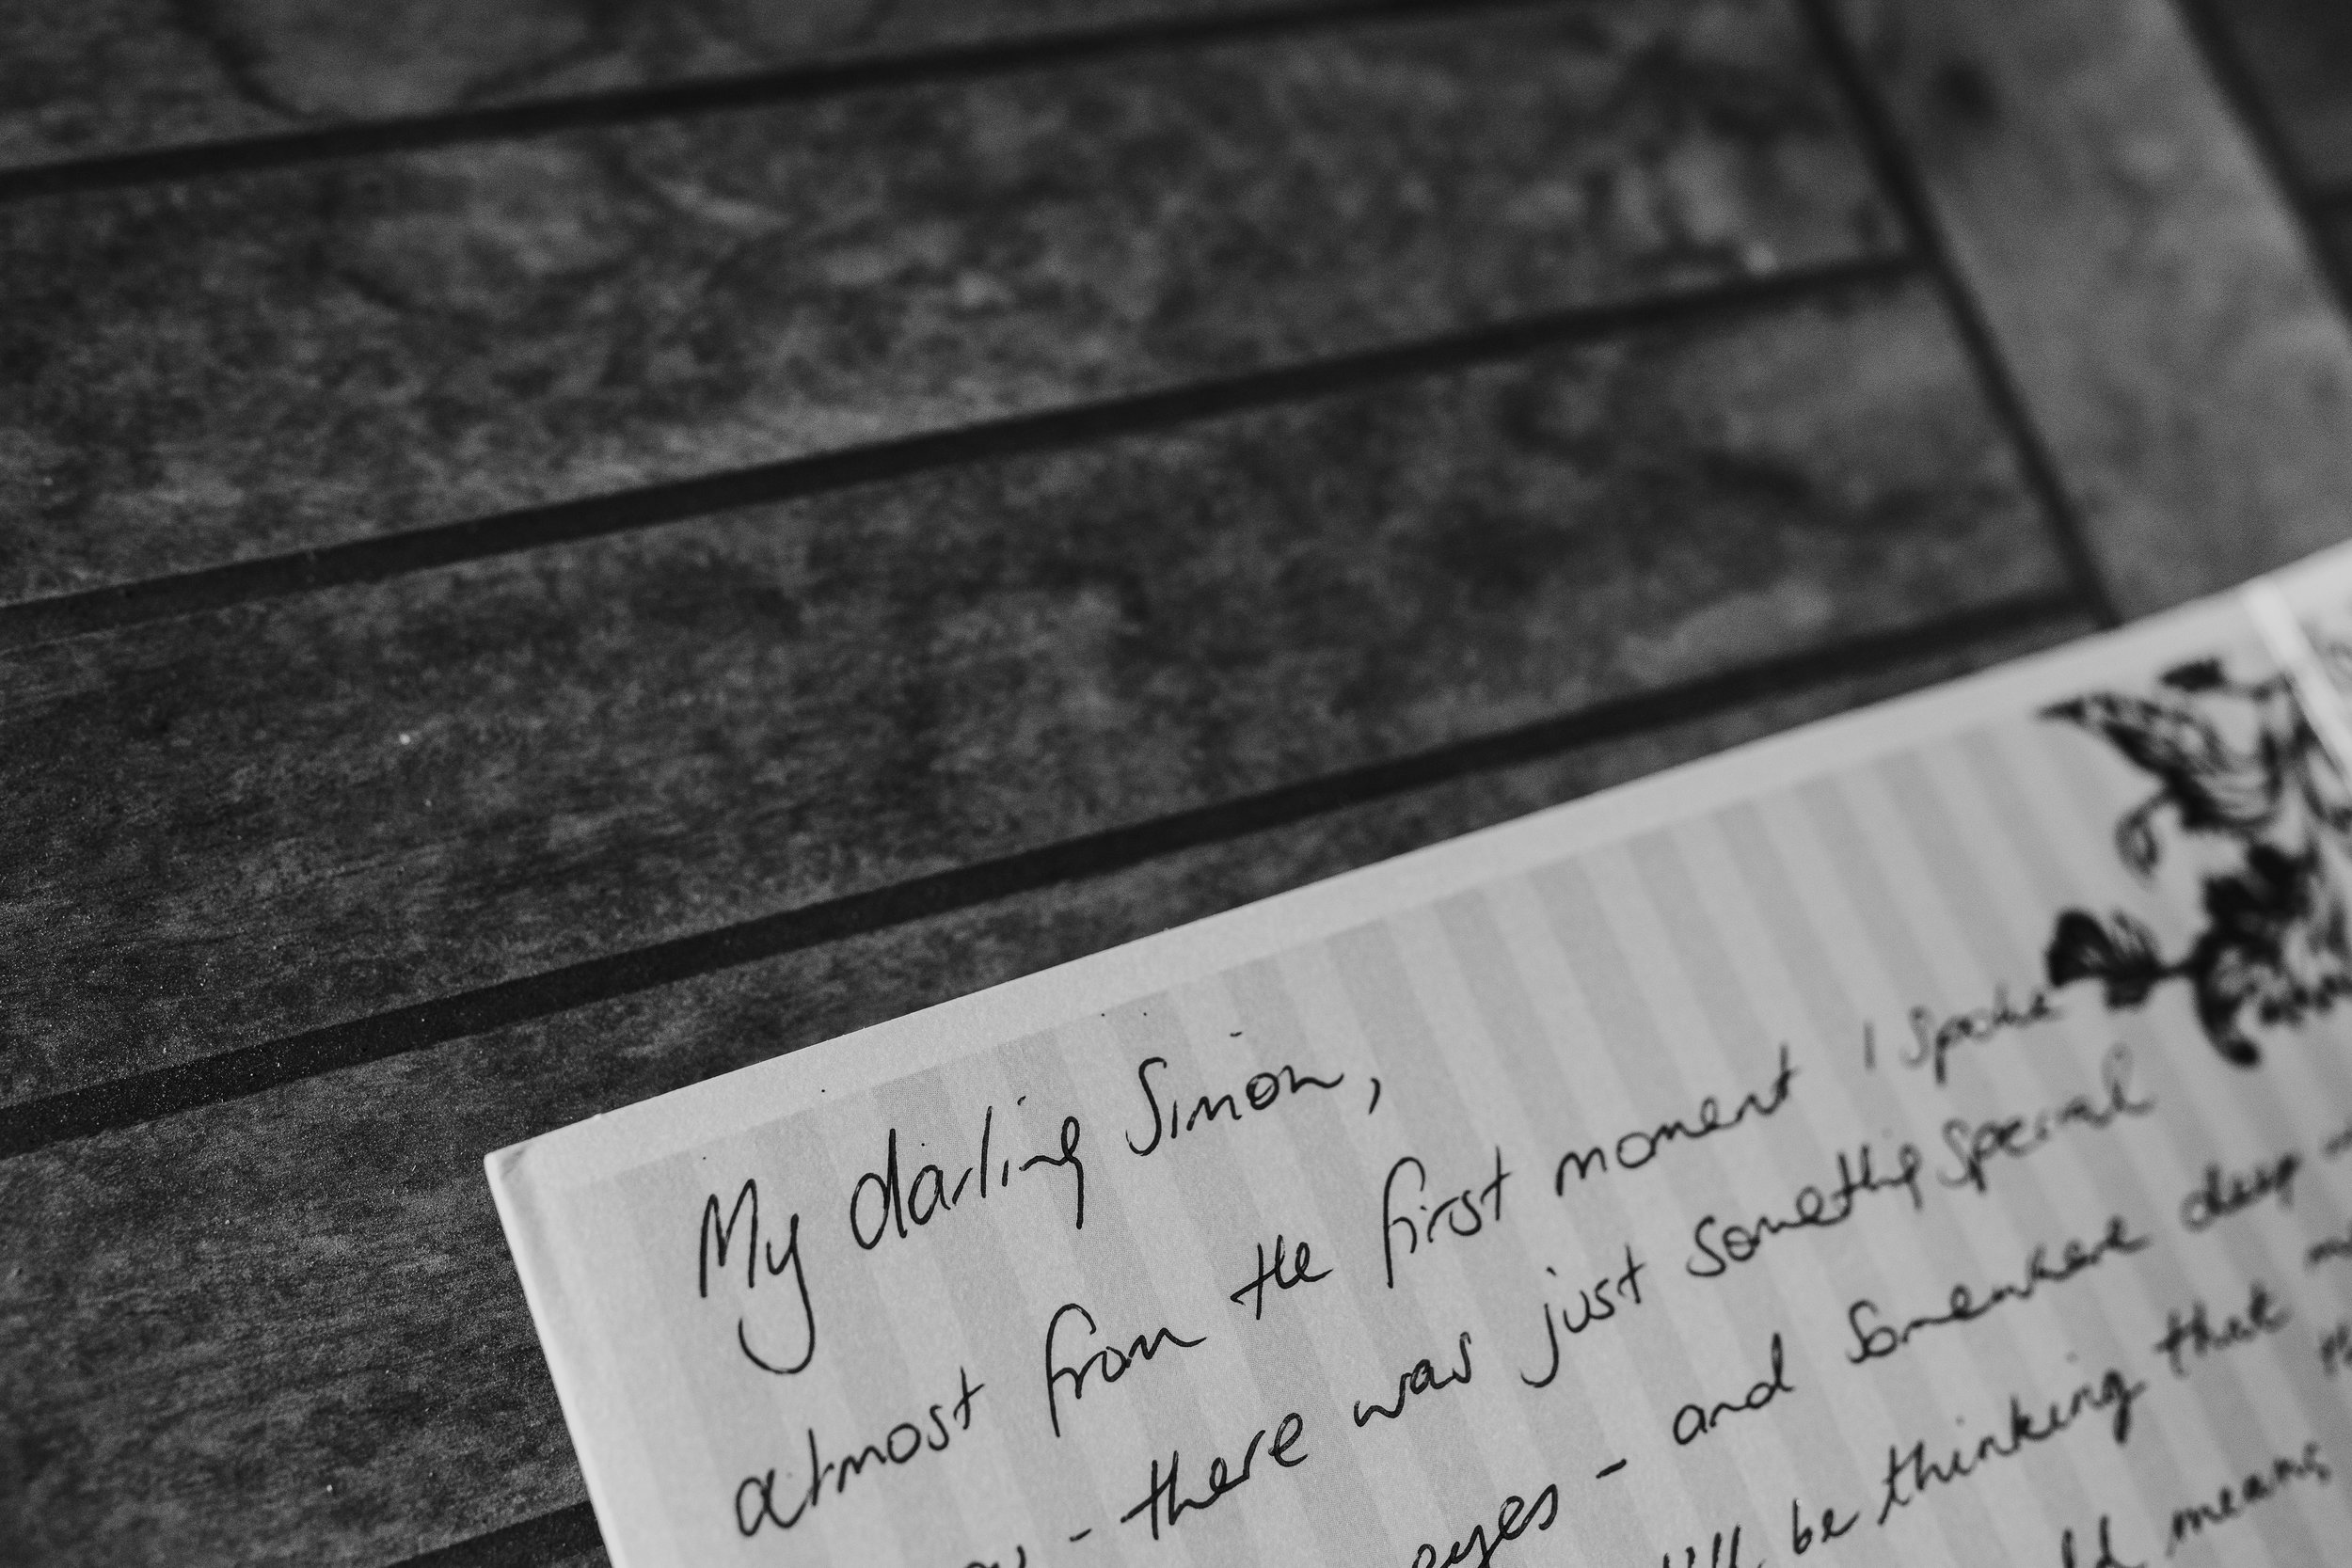 My darling Simon,
almost from the first moment I spoke
- there was just something special
eyes - and somewhere deep -
be thinking that
means